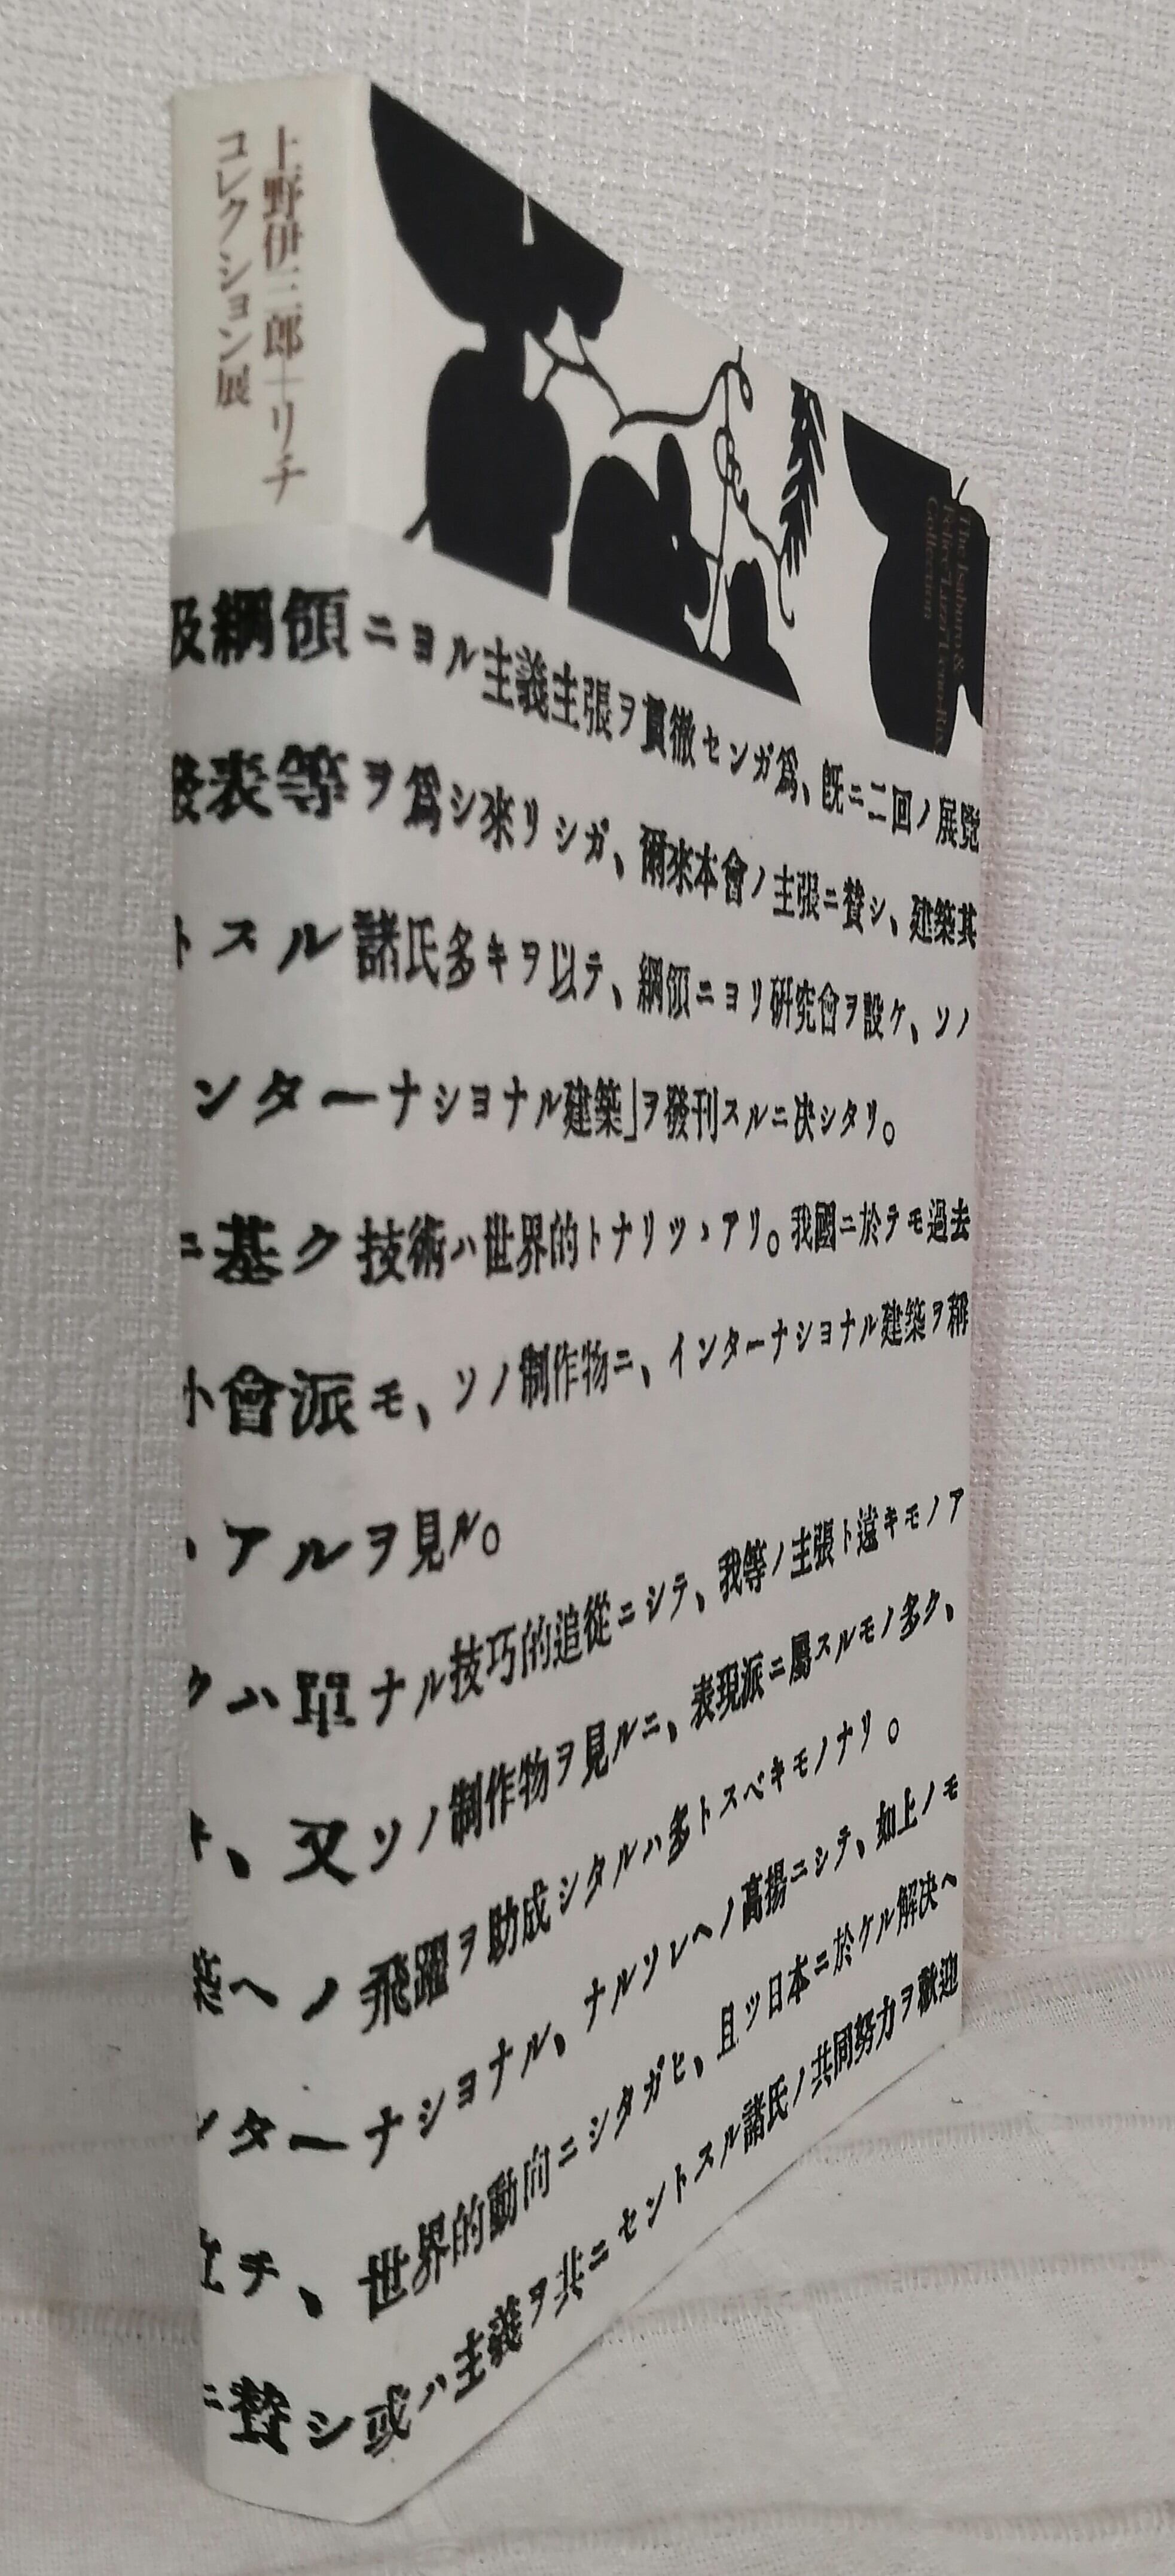 上野伊三郎+リチ
コレクション展
The Isaburo &
Felice "Lizzi" Ueno-Rix
Collection
及綱領ニヨル主義主張ヲ貫徹センガ爲、既ニ二回ノ展覽
發表等ヲ爲シ來リシガ、爾來本會ノ主張ニ賛シ、建築其
トスル諸氏多キヲ以テ、綱領ニヨリ研究會ヲ設ケ、ソノ
ンターナシヨナル建築」ヲ發刊スルニ决シタリ。
ニ基ク技術ハ世界的トナリツヽアリ。我國ニ於テモ過去
小會派モ、ソノ制作物ニ、インターナシヨナル建築ヲ稱
アルヲ見ル。
クハ單ナル技巧的追從ニシテ、我等ノ主張ト遠キモノア
、又ソノ制作物ヲ見ルニ、表現派ニ屬スルモノ多ク、
築ヘノ飛躍ヲ助成シタルハ多トスベキモノナリ。
ンターナシヨナル、ナルソレヘノ高揚ニシテ、如上ノモ
立チ、世界的動向ニシタガヒ、且ツ日本ニ於ケル解决ヘ
ニ賛シ或ハ主義ヲ共ニセントスル諸氏ノ共同努力ヲ歡迎